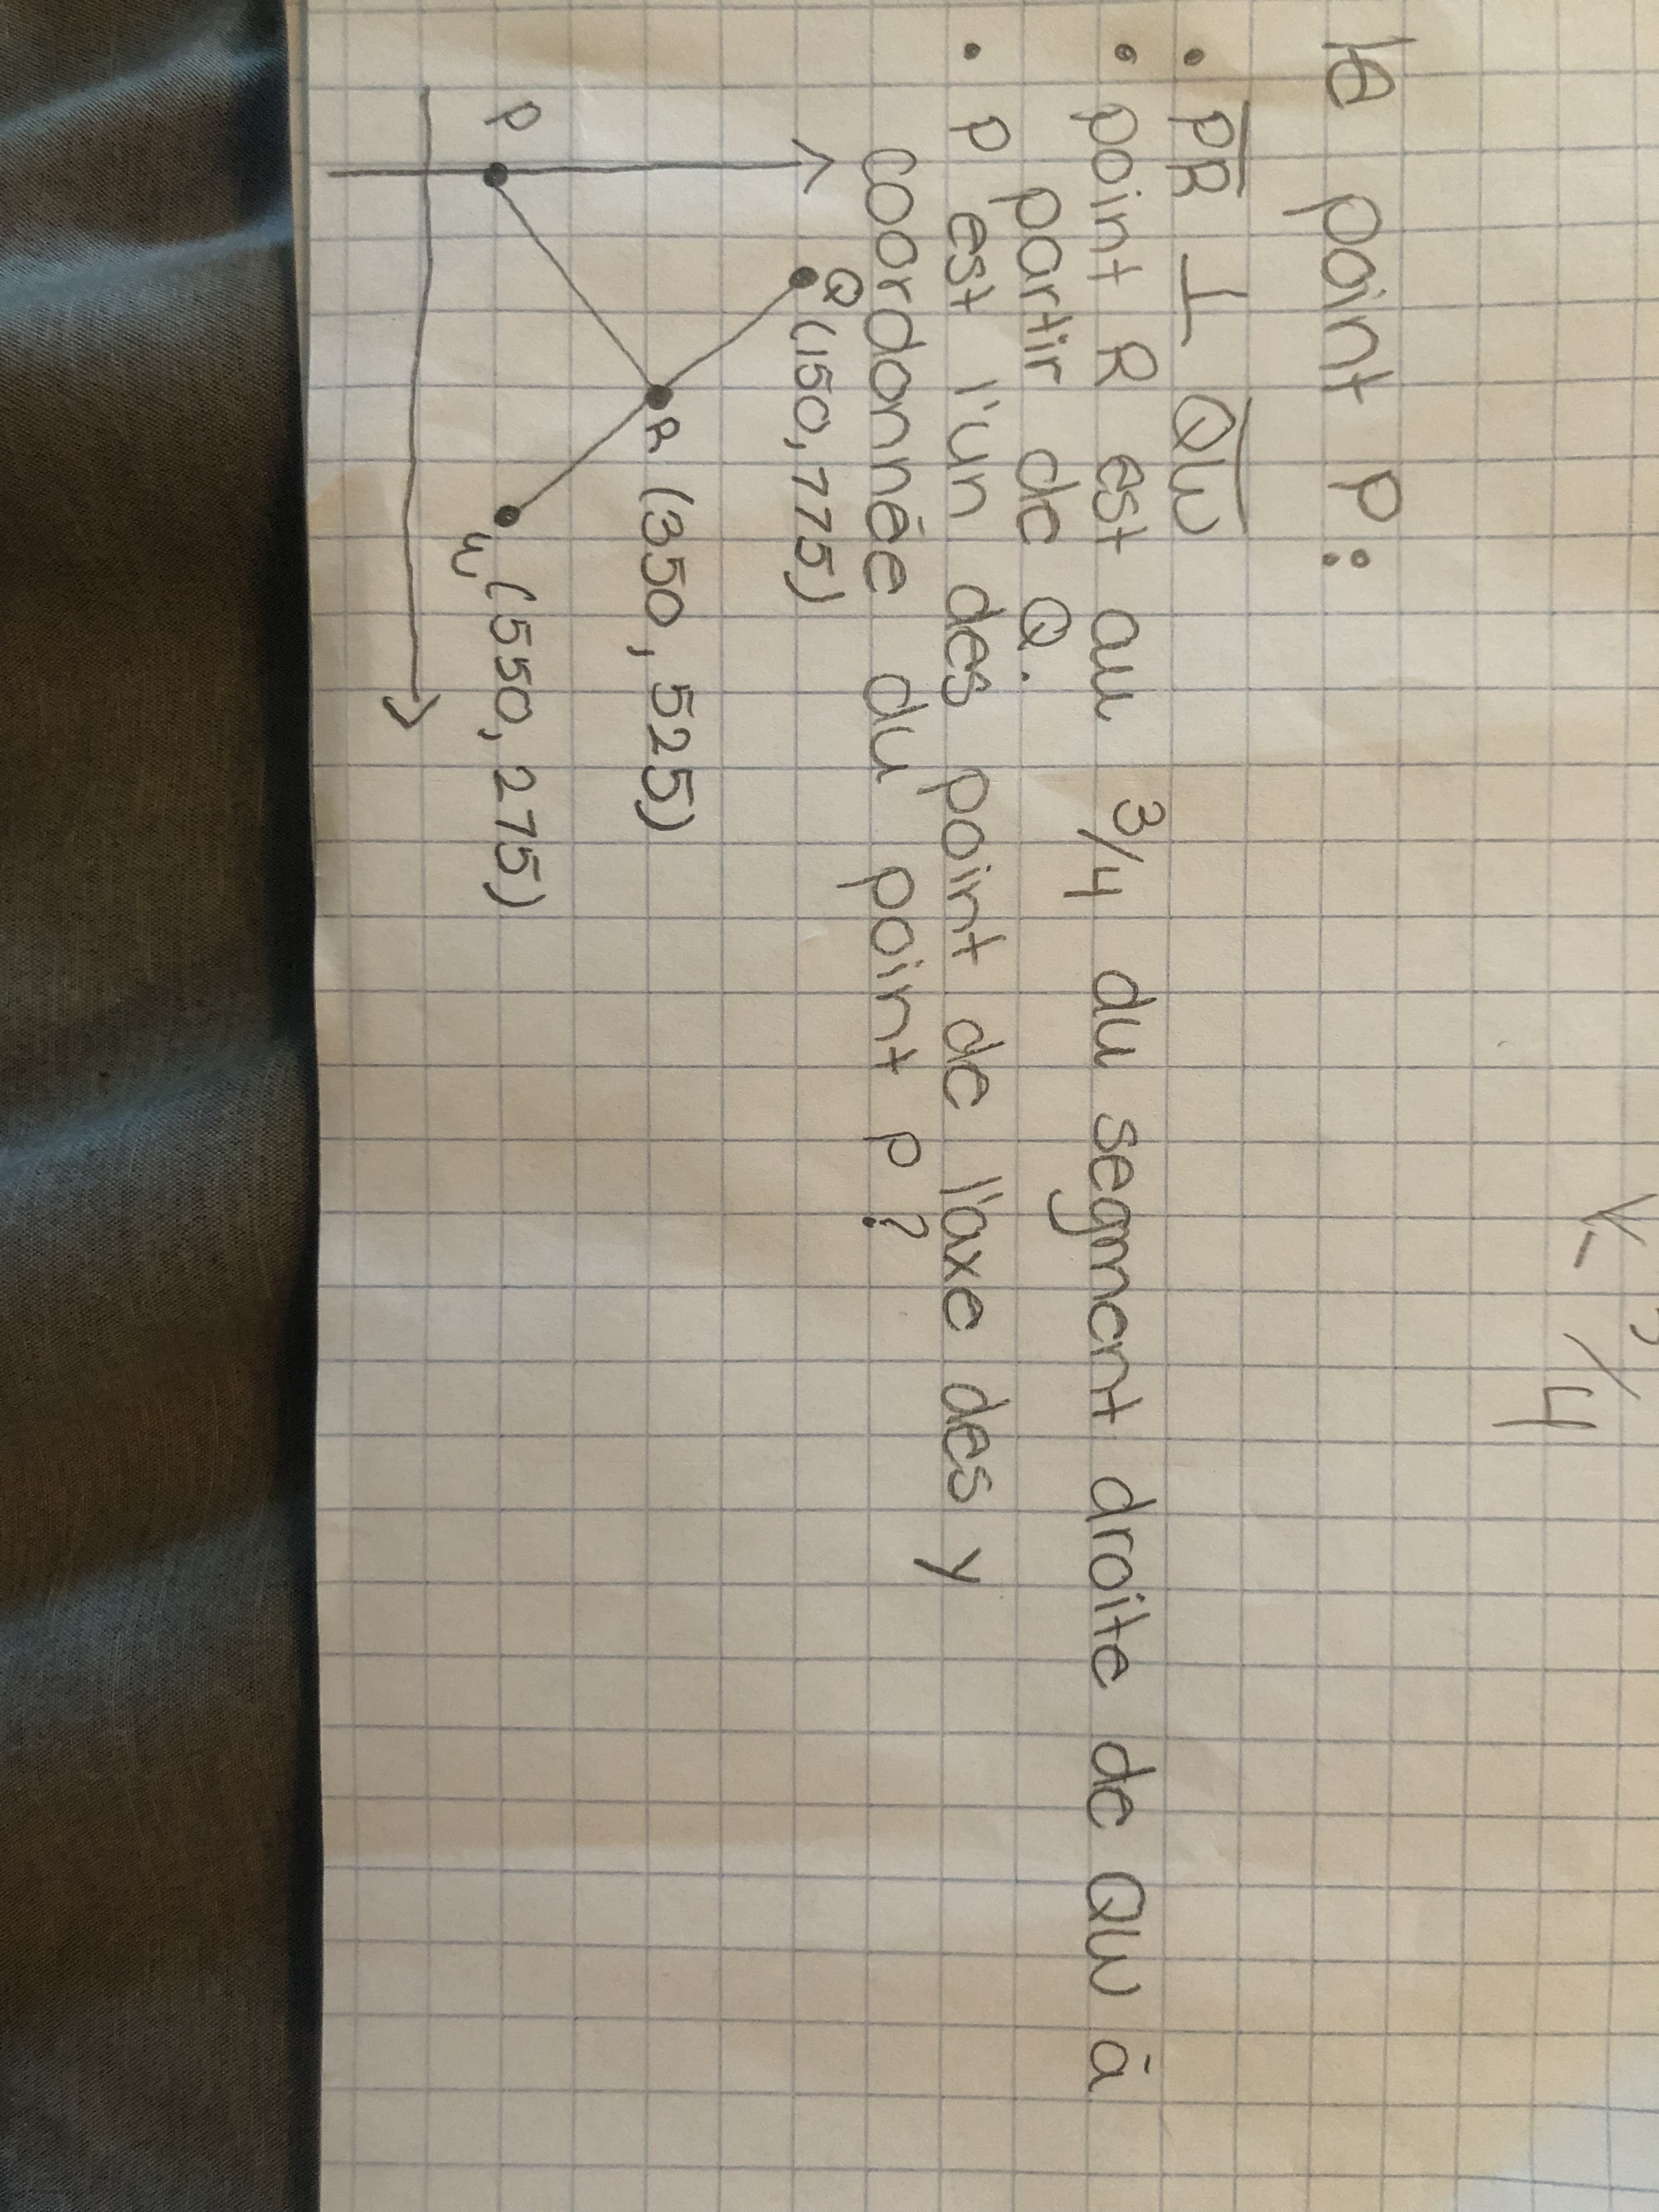 le point P:
• PR ⊥ QW
• point R est au 3/4 du segment droite de QW à
partir de Q.
• P est l'un des point de l'axe des y
coordonnée du point P?
Q (150, 775)
R (350, 525)
P
W (550, 275)
/4